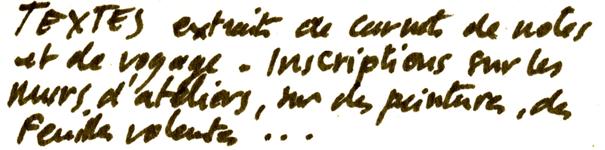 TEXTES extraits de carnets de notes
et de voyage. Inscriptions sur les
murs d'ateliers, sur des peintures, des
feuilles volantes ...